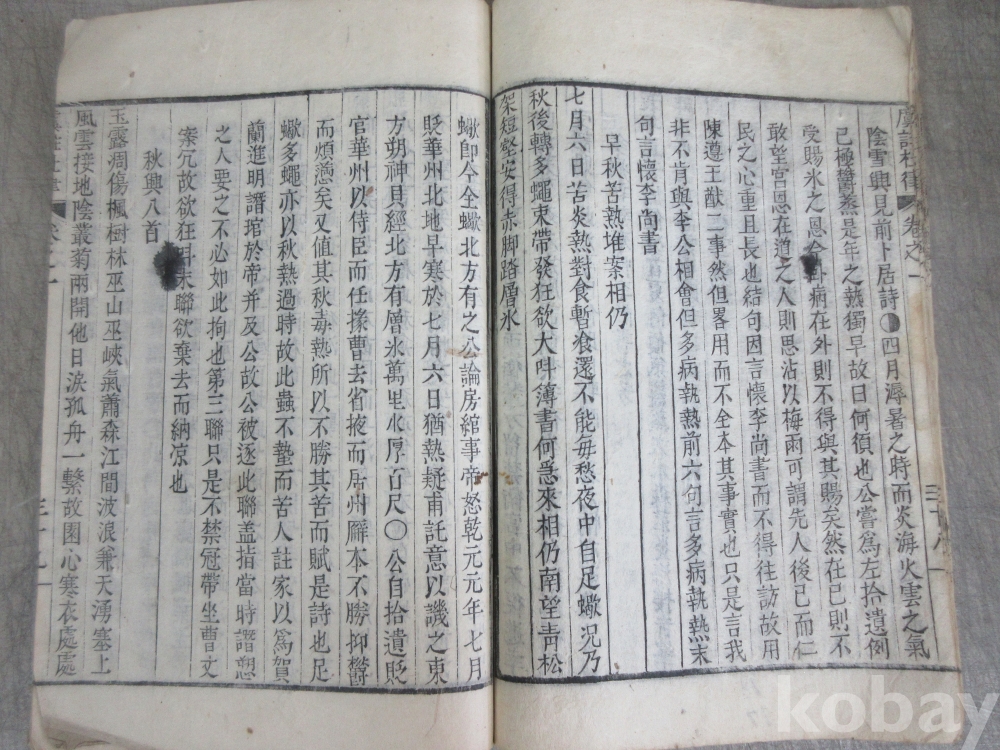 虞註杜律 卷之一
陰雪興見前卜居詩○四月溽暑之時而炎海火雲之氣
已極鬱蒸是年之熱獨早故曰何須也公嘗爲左拾遺例
受賜氷之恩今卧病在外則不得與其賜矣然在已則不
敢望宮恩在道之人則思沾以梅雨可謂先人後已而仁
民之心重且長也結句因言懷李尚書而不得往訪故用
陳遵王猷二事然但畧用而不全本其事實也只是言我
非不肯與李公相會但多病執熱前六句言多病執熱末
句言懷李尚書
早秋苦熱堆案相仍
七月六日苦炎熱對食暫飡還不能每愁夜中自足蠍况乃
秋後轉多蠅束帶發狂欲大叫簿書何急來相仍南望靑松
架短壑安得赤脚踏層氷
蠍卽今全蠍北方有之公論房綰事帝怒乾元元年七月
貶華州北地早寒於七月六日猶熱疑甫託意以譏之東
方朔神異經北方有層氷萬里氷厚百尺○公自拾遺貶
官華州以侍臣而任掾曹去省掖而居州廨本不勝抑鬱
而煩懣矣又值其秋毒熱所以不勝其苦而賦是詩也足
蠍多蠅亦以秋熱過時故此蟲不蟄而苦人註家以爲賀
蘭進明譖琯於帝并及公故公被逐此聯盖指當時譖愬
之人要之不必如此拘也第三聯只是不禁冠帶坐曹文
案冗故欲狂呌末聯欲棄去而納凉也
秋興八首
玉露凋傷楓樹林巫山巫峽氣蕭森江間波浪兼天湧塞上
風雲接地陰叢菊兩開他日淚孤舟一繫故園心寒衣處處
三十九
kobay